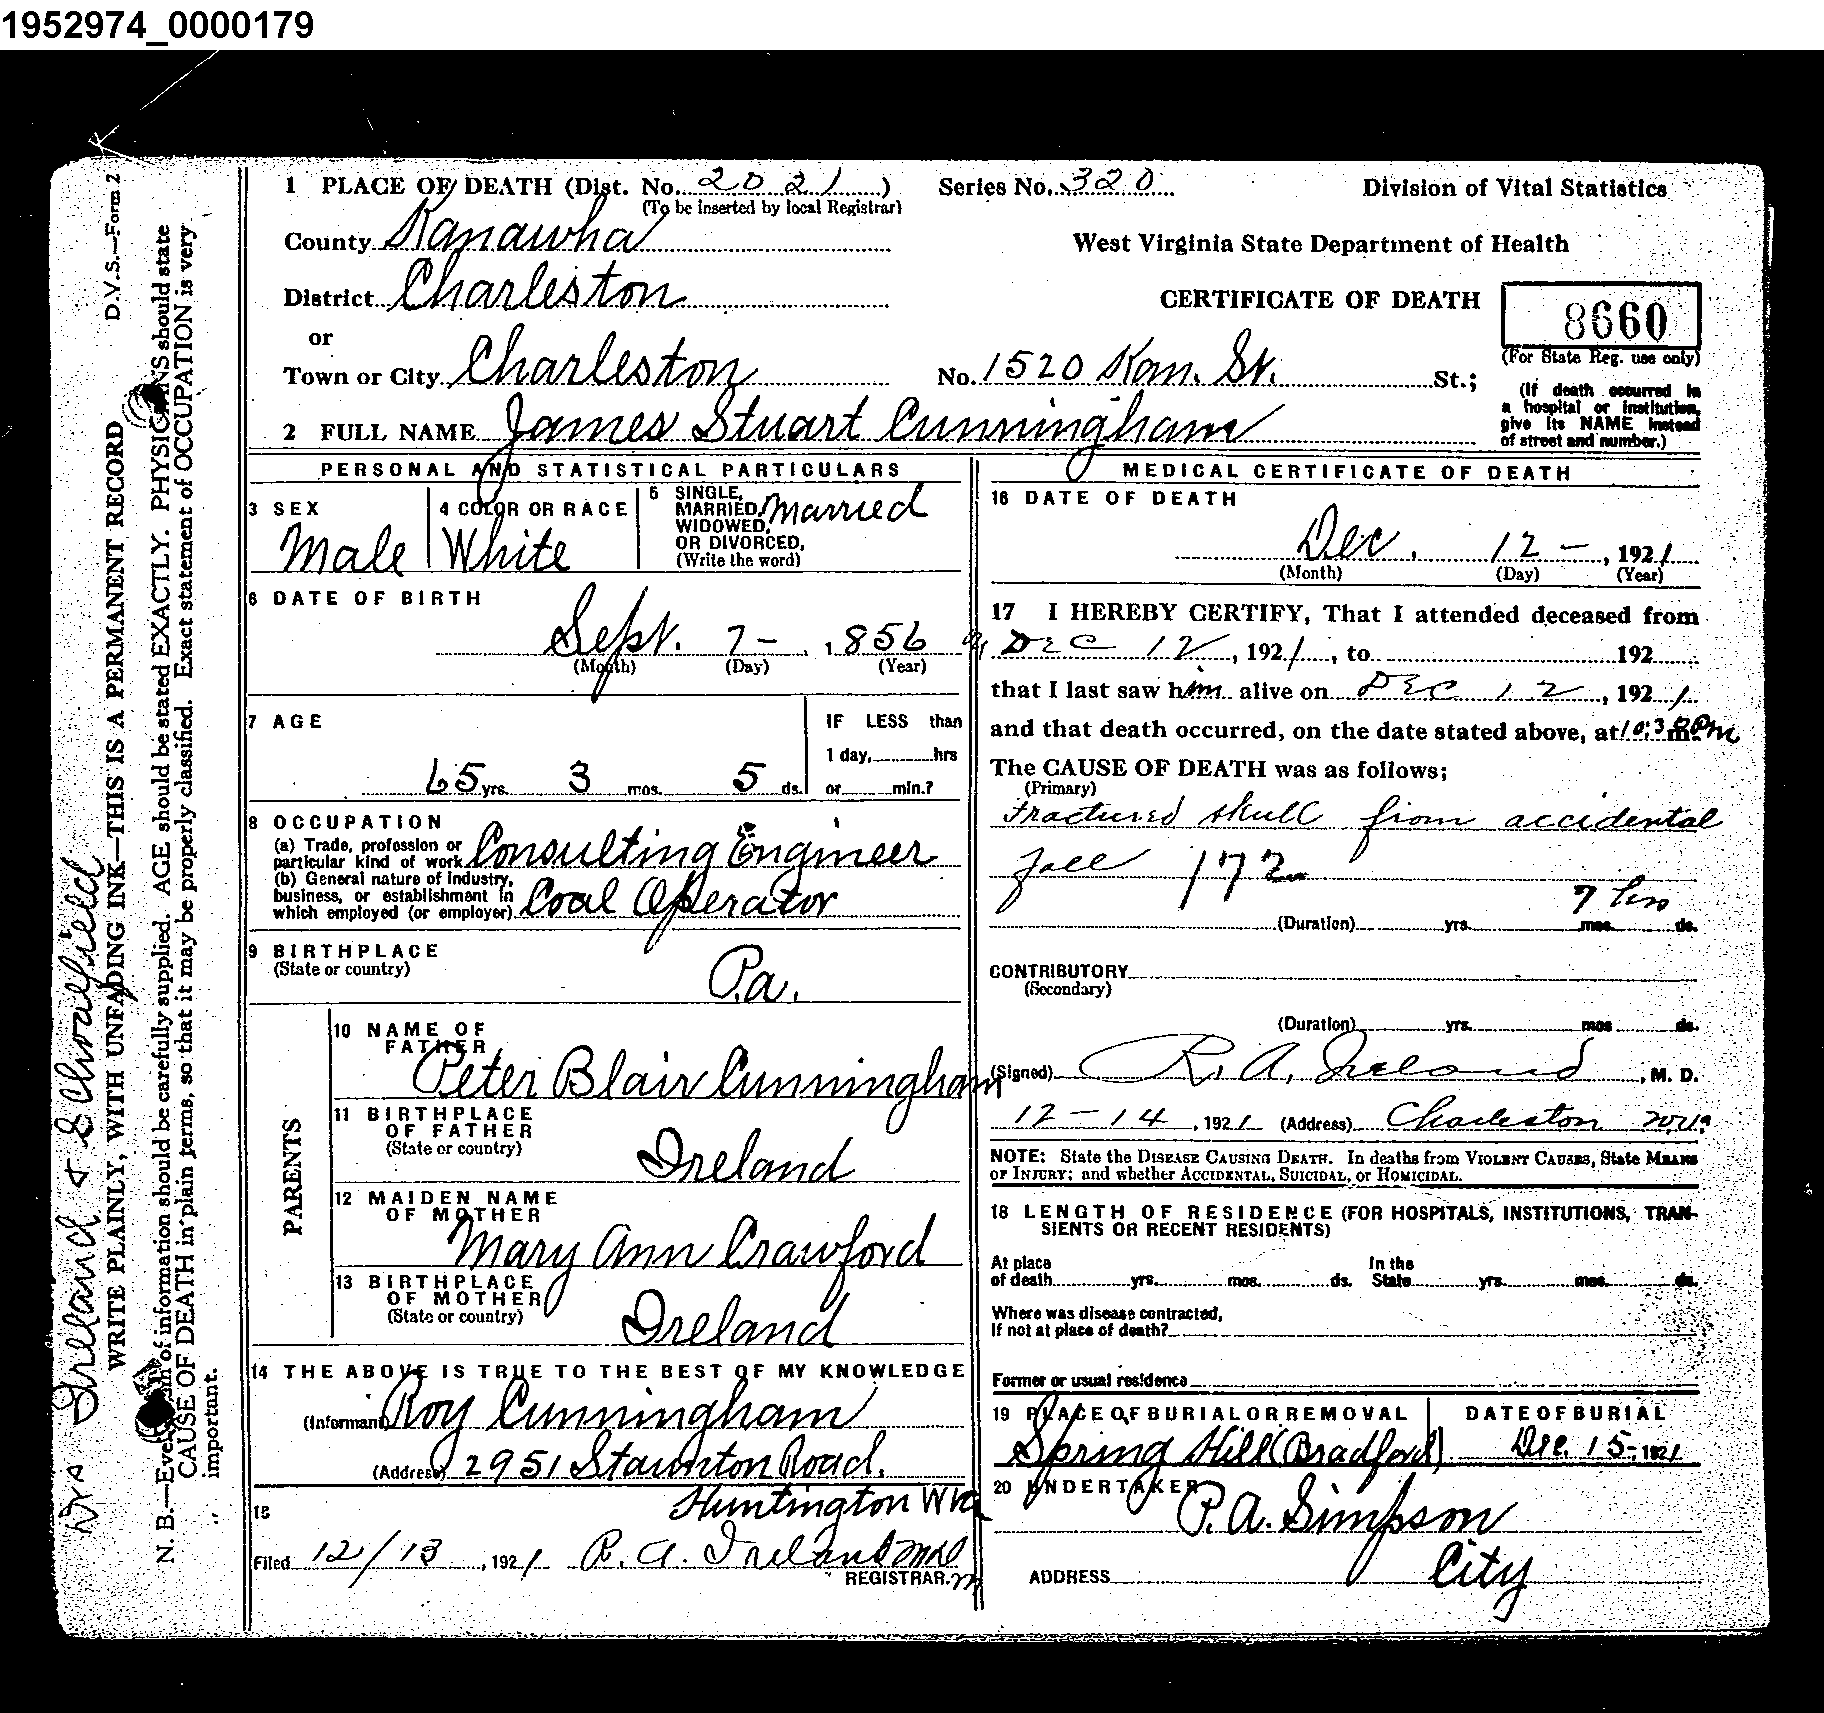 1952974_0000179
1 PLACE OF DEATH (Dist. No. 2021 ) Series No. 320 Division of Vital Statistics
(To be inserted by local Registrar)
County Kanawha West Virginia State Department of Health
District Charleston CERTIFICATE OF DEATH 8660
or
(For State Reg. use only)
Town or City Charleston No. 1520 Kan. St. St.;
(If death occurred in
a hospital or institution,
give its NAME instead
of street and number.)
2 FULL NAME James Stuart Cunningham
PERSONAL AND STATISTICAL PARTICULARS
3 SEX
Male
4 COLOR OR RACE
White
5 SINGLE,
MARRIED, Married
WIDOWED,
OR DIVORCED,
(Write the word)
6 DATE OF BIRTH
Sept. 7- , 1856
(Month) (Day) (Year)
7 AGE
65 yrs. 3 mos. 5 ds.
IF LESS than
1 day, hrs
or min.?
8 OCCUPATION
(a) Trade, profession or
particular kind of work Consulting Engineer
(b) General nature of industry,
business, or establishment in
which employed (or employer) Coal Operator
9 BIRTHPLACE
(State or country) Pa.
PARENTS
10 NAME OF
FATHER
Peter Blair Cunningham
11 BIRTHPLACE
OF FATHER
(State or country) Ireland
12 MAIDEN NAME
OF MOTHER
Mary Ann Crawford
13 BIRTHPLACE
OF MOTHER
(State or country) Ireland
14 THE ABOVE IS TRUE TO THE BEST OF MY KNOWLEDGE
(Informant) Roy Cunningham
(Address) 2951 Staunton Road.
Huntington W Va
15
Filed 12/13 , 1921 R. A. Ireland
REGISTRAR.
MEDICAL CERTIFICATE OF DEATH
16 DATE OF DEATH
Dec. 12- , 1921
(Month) (Day) (Year)
17 I HEREBY CERTIFY, That I attended deceased from
Dec 12 , 1921 , to 192
that I last saw him alive on Dec 12 , 1921
and that death occurred, on the date stated above, at 10:30 Pm
The CAUSE OF DEATH was as follows;
(Primary)
Fractured skull from accidental
fall 172
7 hrs
(Duration) yrs. mos. ds.
CONTRIBUTORY
(Secondary)
(Duration) yrs. mos ds.
(Signed) R. A. Ireland , M. D.
12-14 , 1921 (Address) Charleston W.Va
NOTE: State the DISEASE CAUSING DEATH. In deaths from VIOLENT CAUSES, State MEANS
OF INJURY; and whether ACCIDENTAL, SUICIDAL, or HOMICIDAL.
18 LENGTH OF RESIDENCE (FOR HOSPITALS, INSTITUTIONS, TRAN-
SIENTS OR RECENT RESIDENTS)
At place In the
of death yrs. mos. ds. State yrs. mos. ds.
Where was disease contracted,
If not at place of death?
Former or usual residence
19 PLACE OF BURIAL OR REMOVAL DATE OF BURIAL
Spring Hill (Bradford) Dec. 15- 1921
20 UNDERTAKER
P. A. Simpson
ADDRESS City
D.V.S.—Form 2
WRITE PLAINLY, WITH UNFADING INK—THIS IS A PERMANENT RECORD
N. B.—Every item of information should be carefully supplied. AGE should be stated EXACTLY. PHYSICIANS should state
CAUSE OF DEATH in plain terms, so that it may be properly classified. Exact statement of OCCUPATION is very
important.
Drs Ireland &